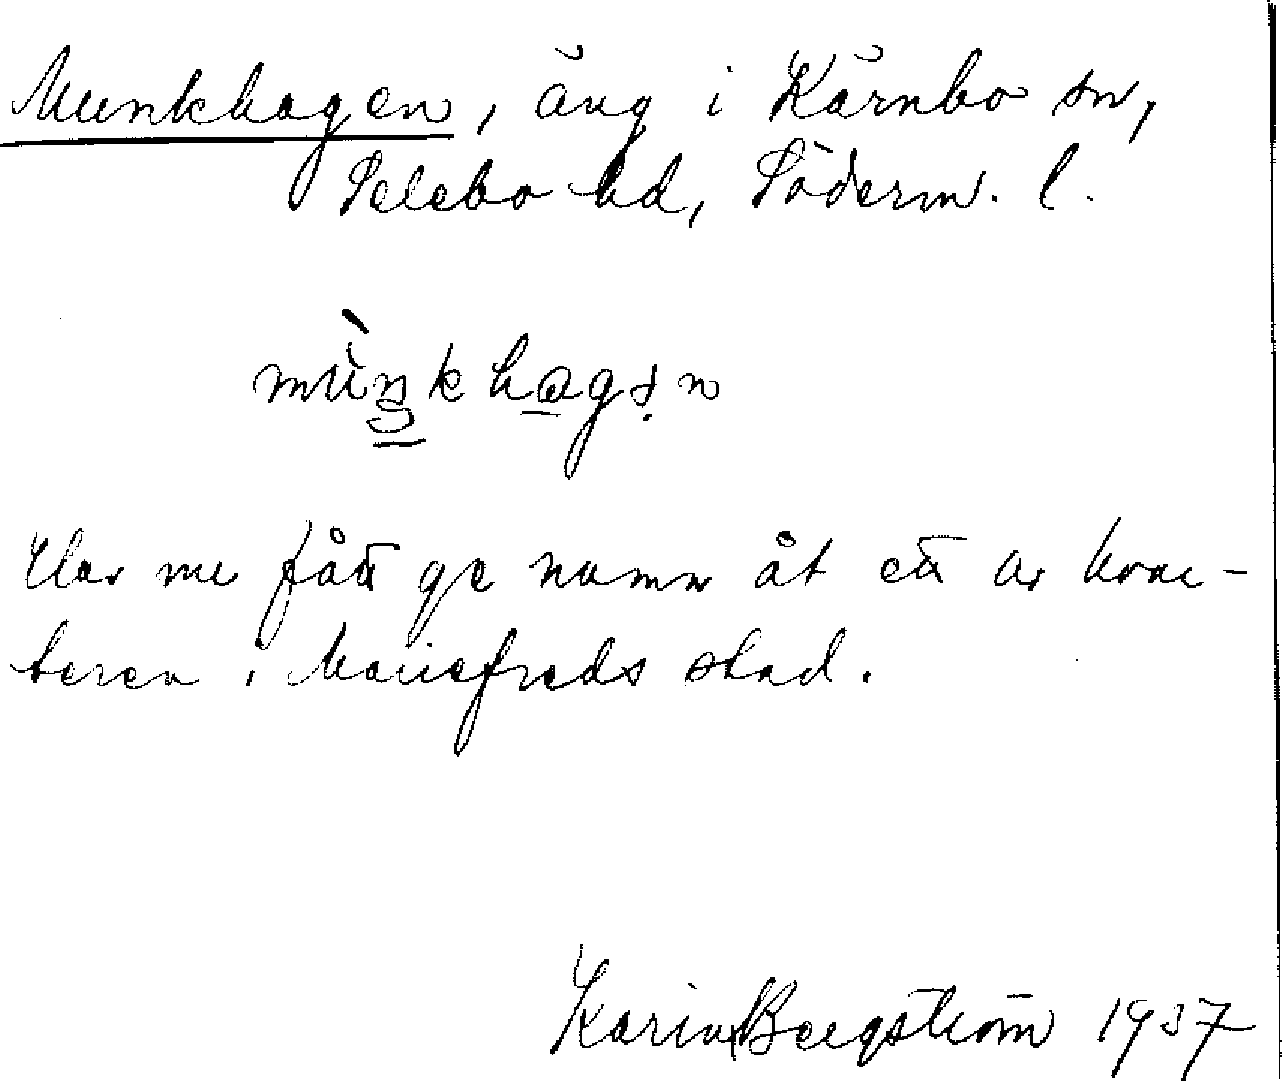 Munkhagen, äng i Kärnbo sn,
Selebo hd, Söderm. l.
Har nu fått ge namn åt ett av kvar-
teren i Mariefreds stad.
Karin Bergström 1937